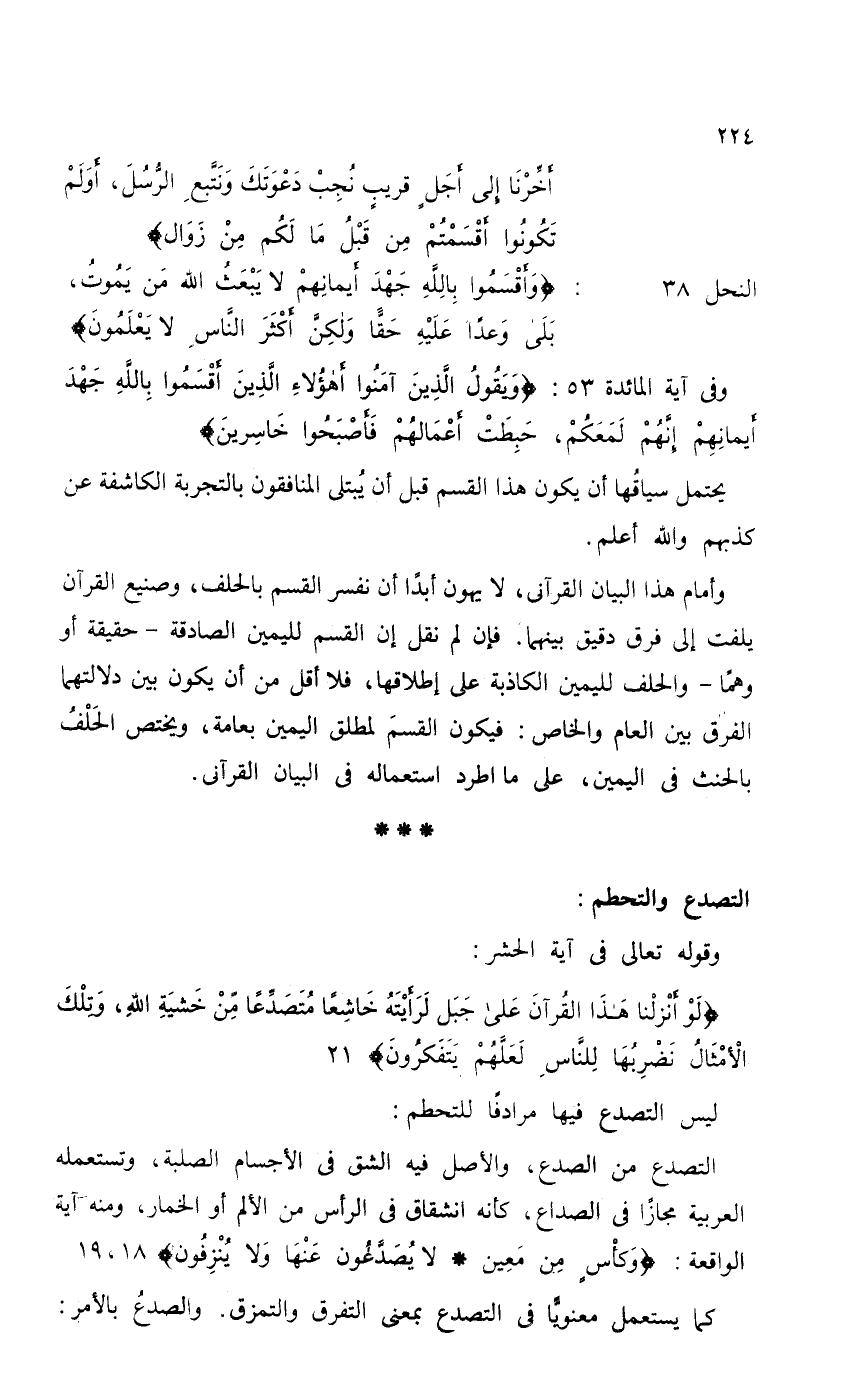 ٢٢٤
أَخِّرْنَا إِلى أَجَلٍ قريبٍ نُجِبْ دَعْوَتَكَ وَنَتَّبعِ الرُّسُلَ، أَوَلَمْ
تَكُونُوا أَقْسَمْتُمْ مِن قَبْلُ مَا لَكُم مِنْ زَوَال﴾
النحل ٣٨ : ﴿وَأَقْسَمُوا بِاللَّهِ جَهْدَ أيمانِهِمْ لا يَبْعَثُ الله مَن يَمُوتُ،
بَلَىٰ وَعدًا عَلَيْهِ حَقًّا وَلٰكِنَّ أَكْثَرَ النَّاسِ لا يَعْلَمُونَ﴾
وفى آية المائدة ٥٣ : ﴿وَيَقُولُ الَّذِينَ آمَنُوا أَهٰؤُلاءِ الَّذِينَ أَقْسَمُوا بِاللَّهِ جَهْدَ
أَيمانِهِمْ إِنَّهُمْ لَمَعَكُمْ، حَبِطَتْ أَعْمَالهُمْ فَأَصْبَحُوا خَاسِرينَ﴾
يحتمل سياقُها أن يكون هذا القسم قبل أن يُبتلى المنافقون بالتجربة الكاشفة عن
كذبهم والله أعلم.
وأمام هذا البيان القرآنى، لا يهون أبدًا أن نفسر القسم بالحلف، وصنيع القرآن
يلفت إلى فرق دقيق بينهما. فإن لم نقل إن القسم لليمين الصادقة - حقيقة أو
وهمًا - والحلف لليمين الكاذبة على إطلاقها، فلا أقل من أن يكون بين دلالتهما
الفرق بين العام والخاص : فيكون القسمَ لمطلق اليمين بعامة، ويختص الحَلْفُ
بالحنث فى اليمين، على ما اطرد استعماله فى البيان القرآنى.
***
التصدع والتحطم :
وقوله تعالى فى آية الحشر :
﴿لَوْ أَنْزلْنا هَـٰذَا القُرآنَ عَلىٰ جَبَل لَرَأَيْتَهُ خَاشِعًا مُتَصَدِّعًا مِّنْ خَشيَةِ اللهِ، وَتِلْكَ
الْأمْثَالُ نَضْرِبُهَا لِلنَّاسِ لَعَلَّهُمْ يَتَفَكرُونَ﴾ ٢١
ليس التصدع فيها مرادفًا للتحطم :
التصدع من الصدع، والأصل فيه الشق فى الأجسام الصلبة، وتستعمله
العربية مجازًا فى الصداع، كأنه انشقاق فى الرأس من الألم أو الخمار، ومنه آية
الواقعة : ﴿وَكَأسٍ مِن مَعِين * لا يُصَدَّعُون عَنْهَا وَلا يُنْزِفُون﴾ ١٨، ١٩
كما يستعمل معنويًّا فى التصدع بمعنى التفرق والتمزق. والصدعُ بالأمر :